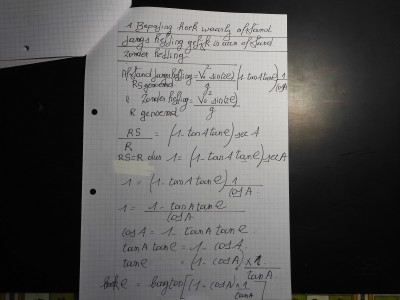 1 Bepaling hoek waarby afstand
langs helling gelyk is aan afstand
zonder helling
Afstand langs helling = V₀² sin(2e)/g (1-tanA tane) 1/cosA
RS genoemd
" Zonder helling = V₀² sin(2e)/g
R genoemd
RS/R = (1-tanA tane) sec A
RS=R dus 1 = (1-tanA tane) secA
1 = (1-tanA tane) 1/cosA
1 = 1-tanA tane / cosA
cosA = 1-tanA tane
tanA tane = 1-cosA
tane = (1-cosA) × 1/tanA
hoek e = bagtan [(1-cosA) × 1/tanA